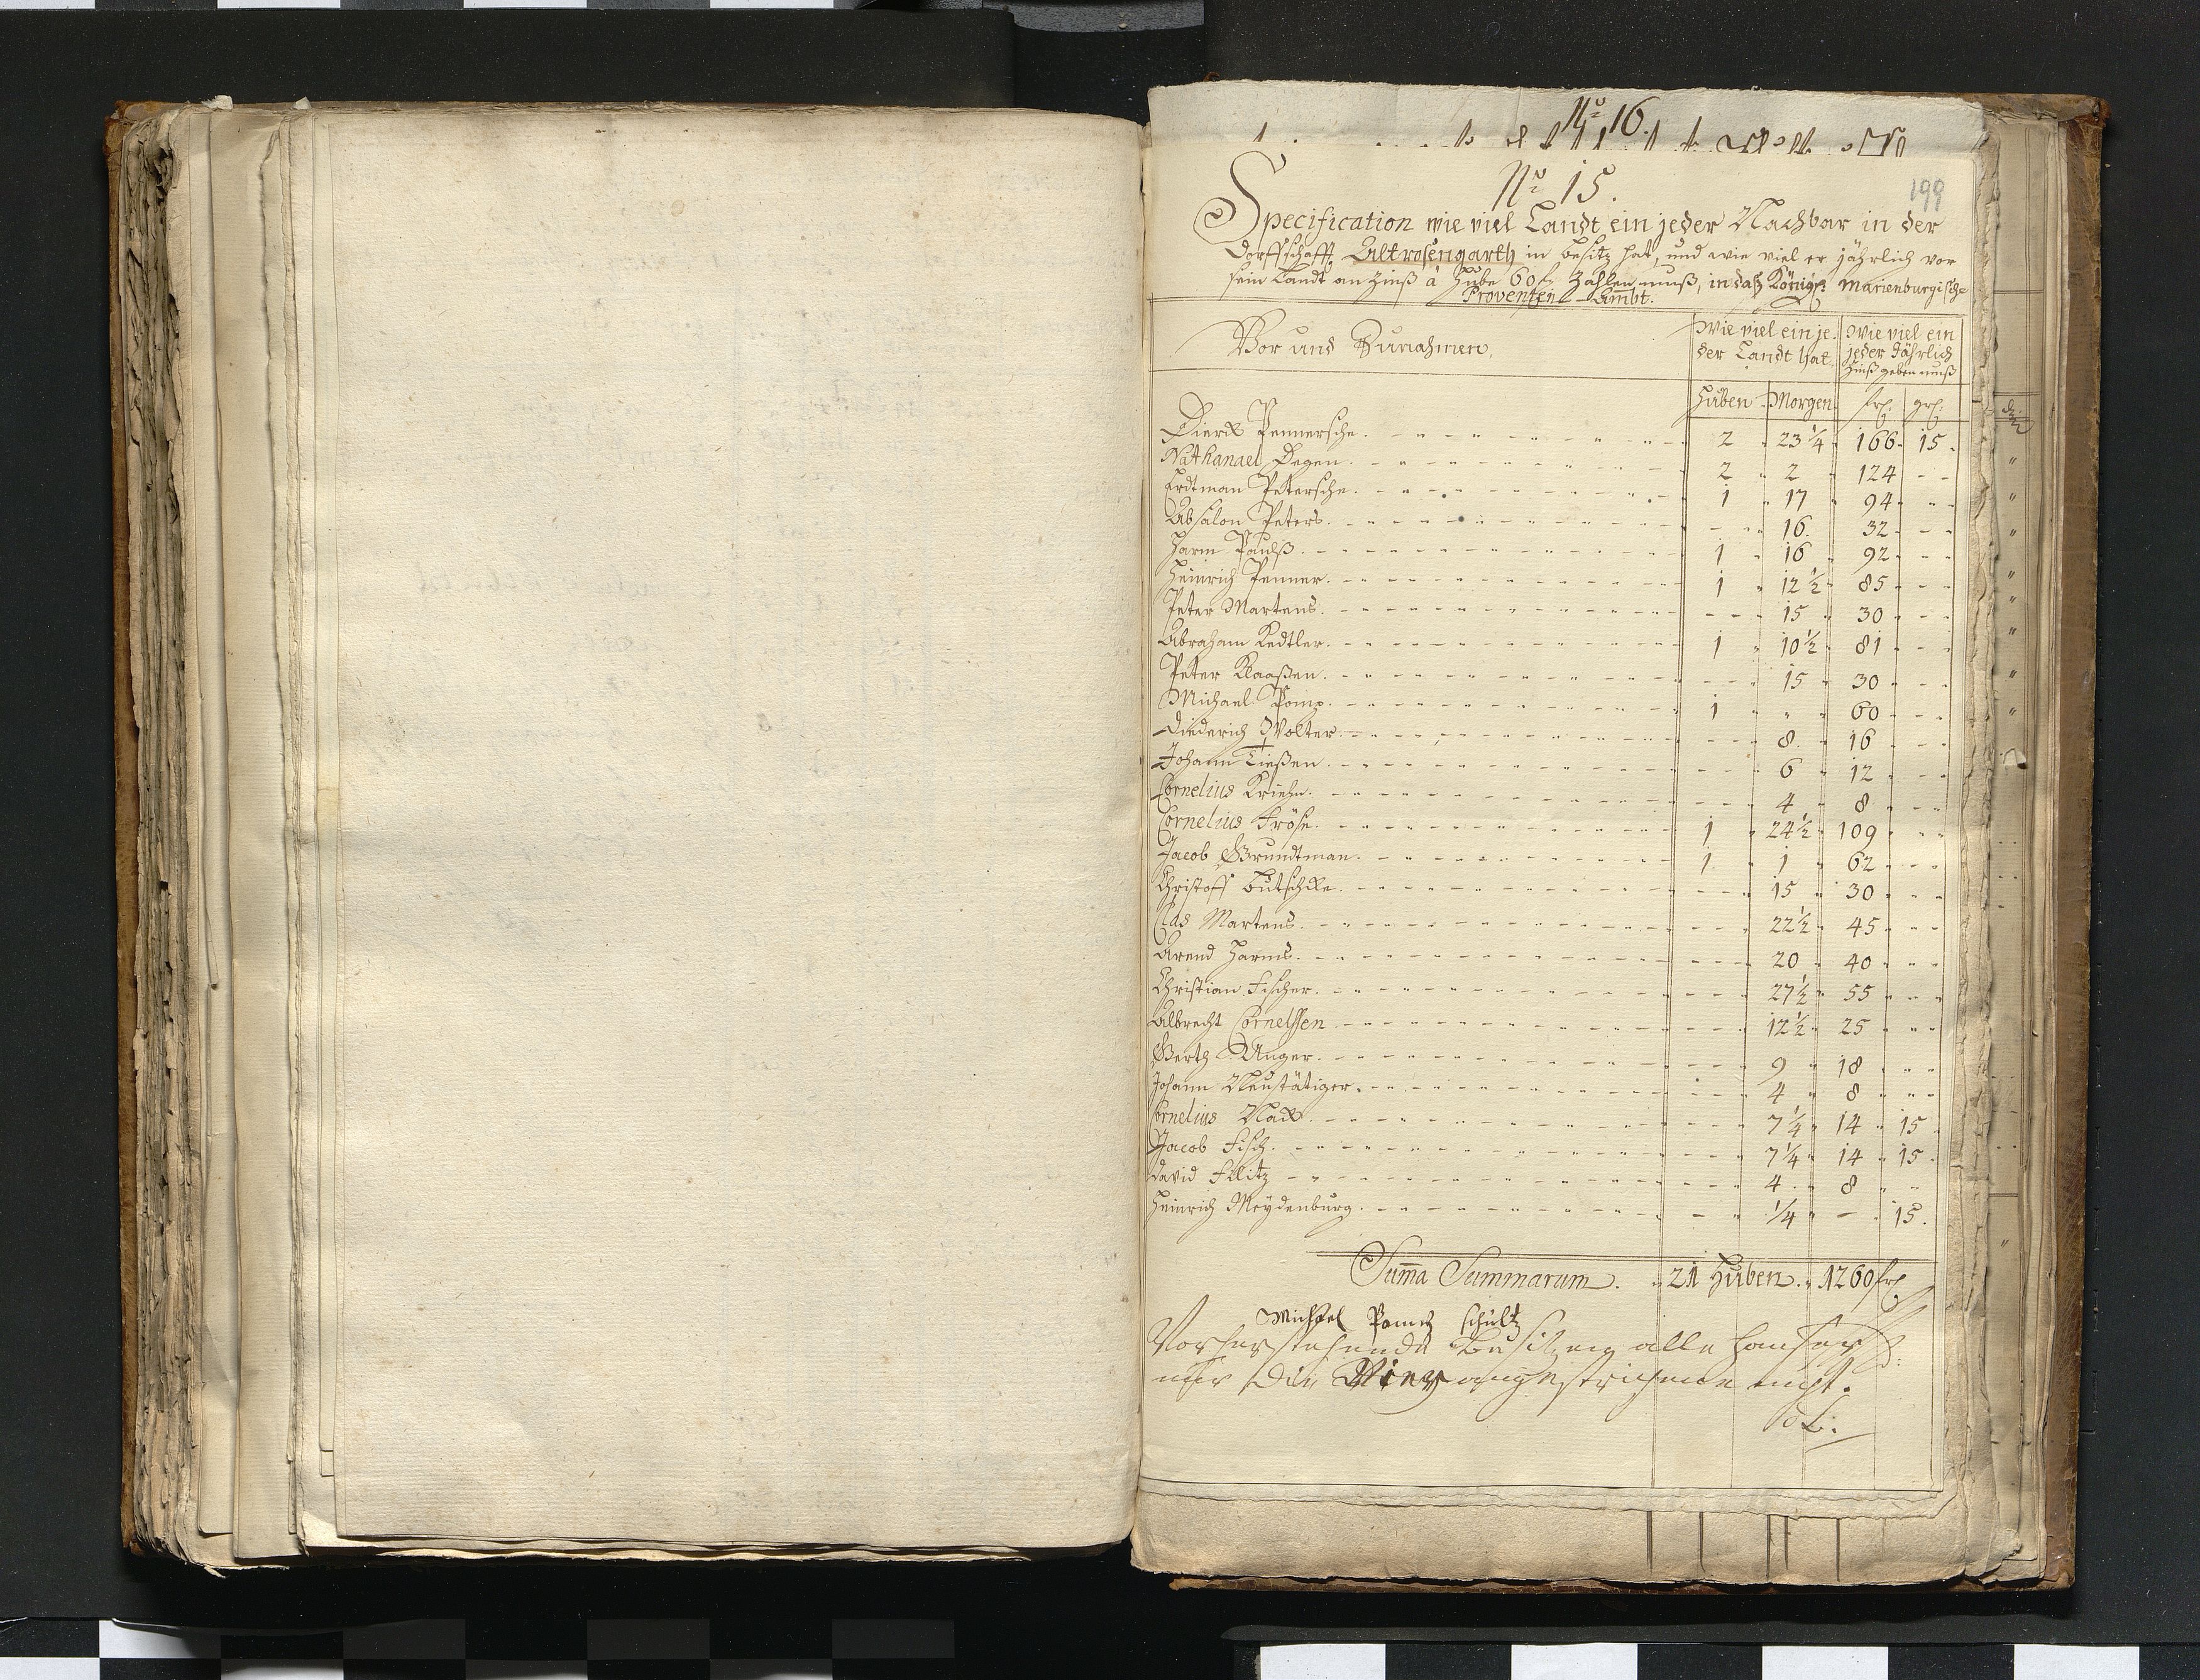 No 16.
No 15.
199
Specification wie viel Landt ein jeder Nachbar in der
Dorffschafft Altrosengarth in besitz hat, und wie viel er jährlich vor
sein Landt an Zinß à Hube 60 fl. Zahlen muß, in daß Königl. Marienburgische
Proventen-Ambt.
Vor und Zunahmen,
Wie viel ein je- Wie viel ein
der Landt hat. jeder Jährlich
Zinß geben muß
Huben Morgen. frl. grl.
Dierk Pennersche. 2 23 1/4 166. 15.
Nathanael Degen. 2 2 124
Erdtman Petersche. 1 17 94
Absalon Peters. 16. 32
Harm Paulß. 1 16 92
Heinrich Penner. 1 12 1/2 85
Peter Martens. 15 30
Abraham Kedtler. 1 10 1/2 81
Peter Klaaßen. 15 30
Michael Pomp. 1 60
Diederich Wolter. 8. 16
Johann Tießen. 6 12
Cornelius Kriehn. 4 8
Cornelius Fröse. 1 24 1/2 109
Jacob Grundtman. 1 1 62
Christoff Butschke. 15 30
Clas Martens. 22 1/2 45
Arend Harms. 20 40
Christian Fischer. 27 1/2 55
Albrecht Cornelssen 12 1/2 25
Gerth Unger. 9 18
Johann Neustätiger. 4 8
Cornelius Nack. 7 1/4 14 15
Jacob Fisch. 7 1/4 14 15.
David Flitz 4. 8
Heinrich Meydenburg. 1/4 - 15.
Summa Summarum. 21 Huben. 1260 frl
Michael Pomp schultz
Vorherstehende besitzen alle
nur die Vier angestrichene nicht.